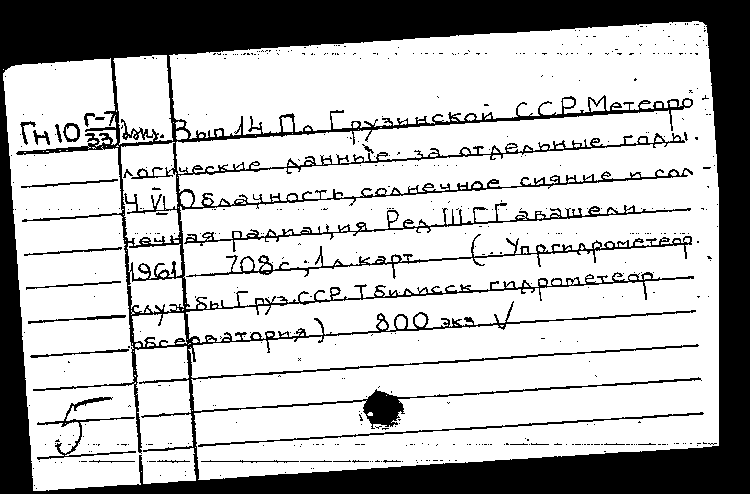 Гн10 Г-7/33 2экз. Вып.14. По Грузинской ССР. Метеоро-
логические данные за отдельные годы.
Ч. VI Облачность, солнечное сияние и сол-
нечная радиация Ред. Ш.Г. Гавашели.
1961 708с.; 1л. карт. (...Упр. гидрометеор.
службы Груз.ССР. Тбилисск. гидрометеор.
обсерватория). 800 экз. V
5